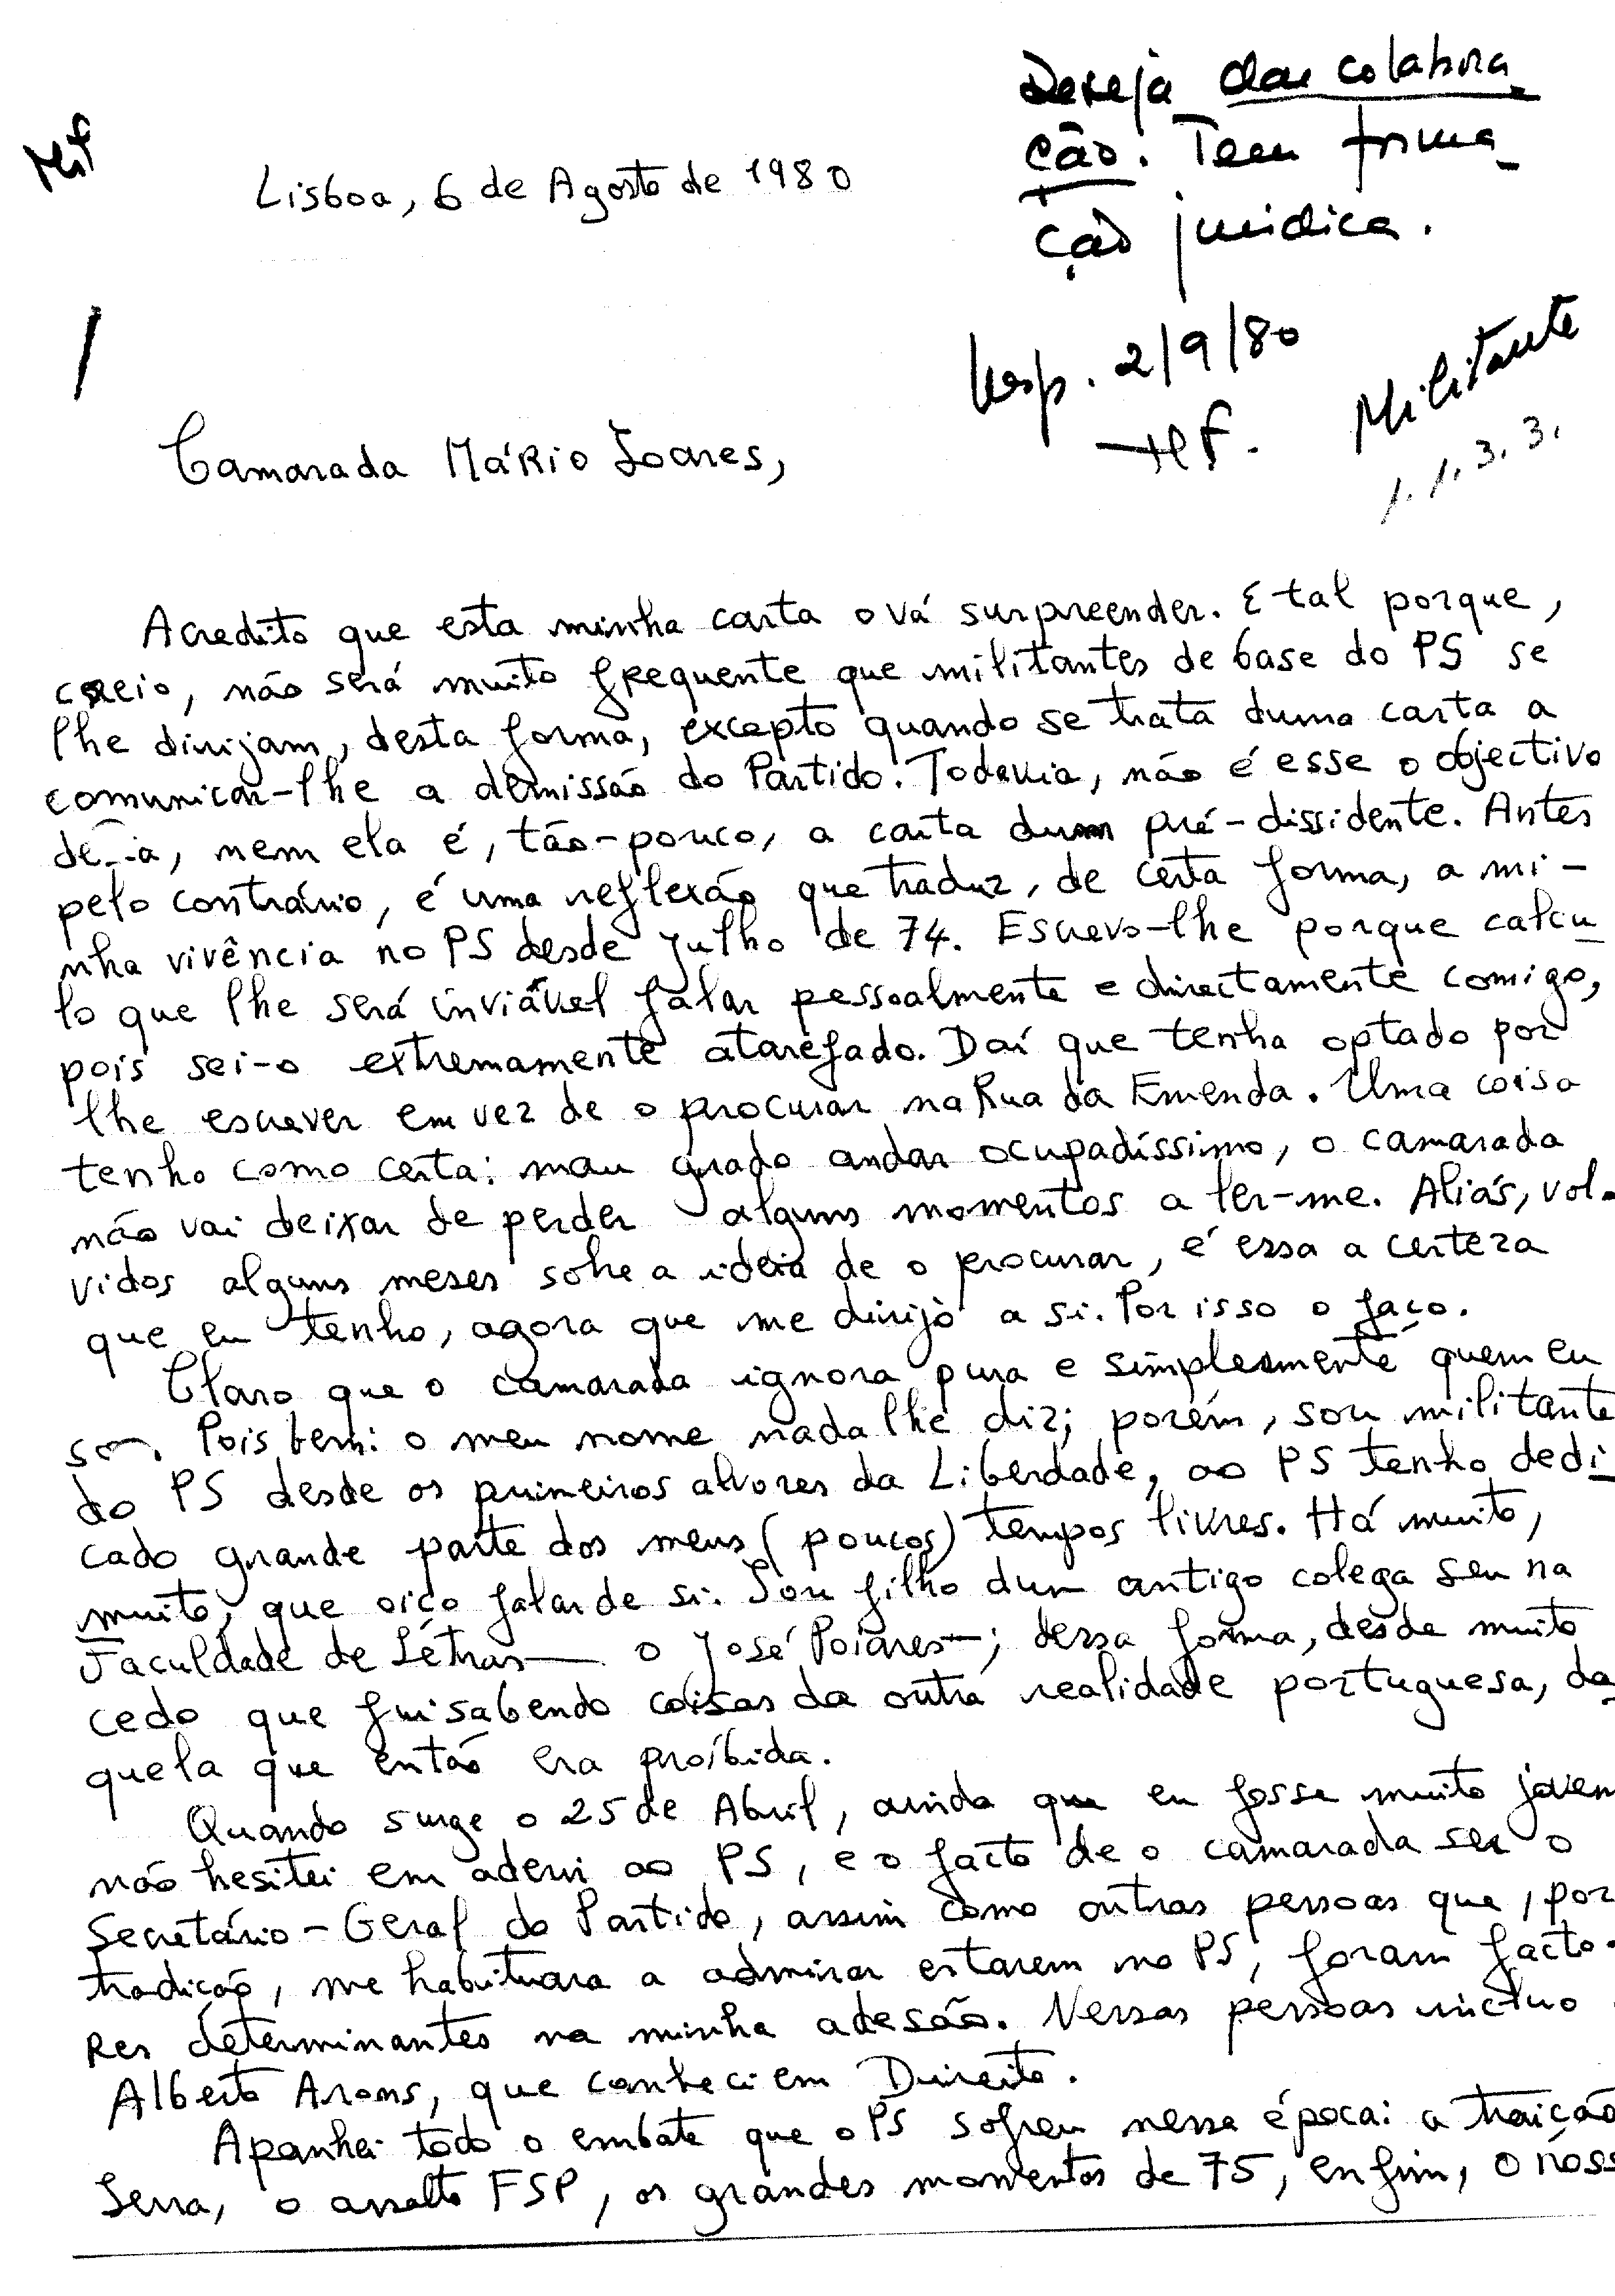 Deseja dar colabora
ção. Tem forma
ção jurídica.
Lisboa, 6 de Agosto de 1980
Resp. 2/9/80
Militante
1.1.3.3.
Camarada Mário Soares,
Acredito que esta minha carta o vá surpreender. E tal porque,
creio, não será muito frequente que militantes de base do PS se
lhe dirijam, desta forma, excepto quando se trata duma carta a
comunicar-lhe a demissão do Partido. Todavia, não é esse o objectivo
desta, nem ela é, tão-pouco, a carta dum pré-dissidente. Antes
pelo contrário, é uma reflexão que traduz, de certa forma, a mi-
nha vivência no PS desde Julho de 74. Escrevo-lhe porque calcu
lo que lhe será inviável falar pessoalmente e directamente comigo,
pois sei-o extremamente atarefado. Daí que tenha optado por
lhe escrever em vez de o procurar na Rua da Emenda. Uma coisa
tenho como certa: mau grado andar ocupadíssimo, o camarada
não vai deixar de perder alguns momentos a ler-me. Aliás, vol-
vidos alguns meses sobre a ideia de o procurar, é essa a certeza
que eu tenho, agora que me dirijo a si. Por isso o faço.
Claro que o camarada ignora pura e simplesmente quem eu
sou. Pois bem: o meu nome nada lhe diz; porém, sou militante
do PS desde os primeiros alvores da Liberdade, ao PS tenho dedi
cado grande parte dos meus (poucos) tempos livres. Há muito,
muito, que oiço falar de si. Sou filho dum antigo colega seu na
Faculdade de Letras — o José Poiares —; dessa forma, desde muito
cedo que fui sabendo coisas da outra realidade portuguesa, da
quela que então era proíbida.
Quando surge o 25 de Abril, ainda que eu fosse muito jovem
não hesitei em aderir ao PS, e o facto de o camarada ser o
Secretário-Geral do Partido, assim como outras pessoas que, por
tradição, me habituara a admirar estarem no PS, foram facto-
res determinantes na minha adesão. Nessas pessoas incluo
Alberto Arons, que conheci em Direito.
Apanhei todo o embate que o PS sofreu nessa época: a traição
Serra, o assalto FSP, os grandes momentos de 75, enfim, o noss